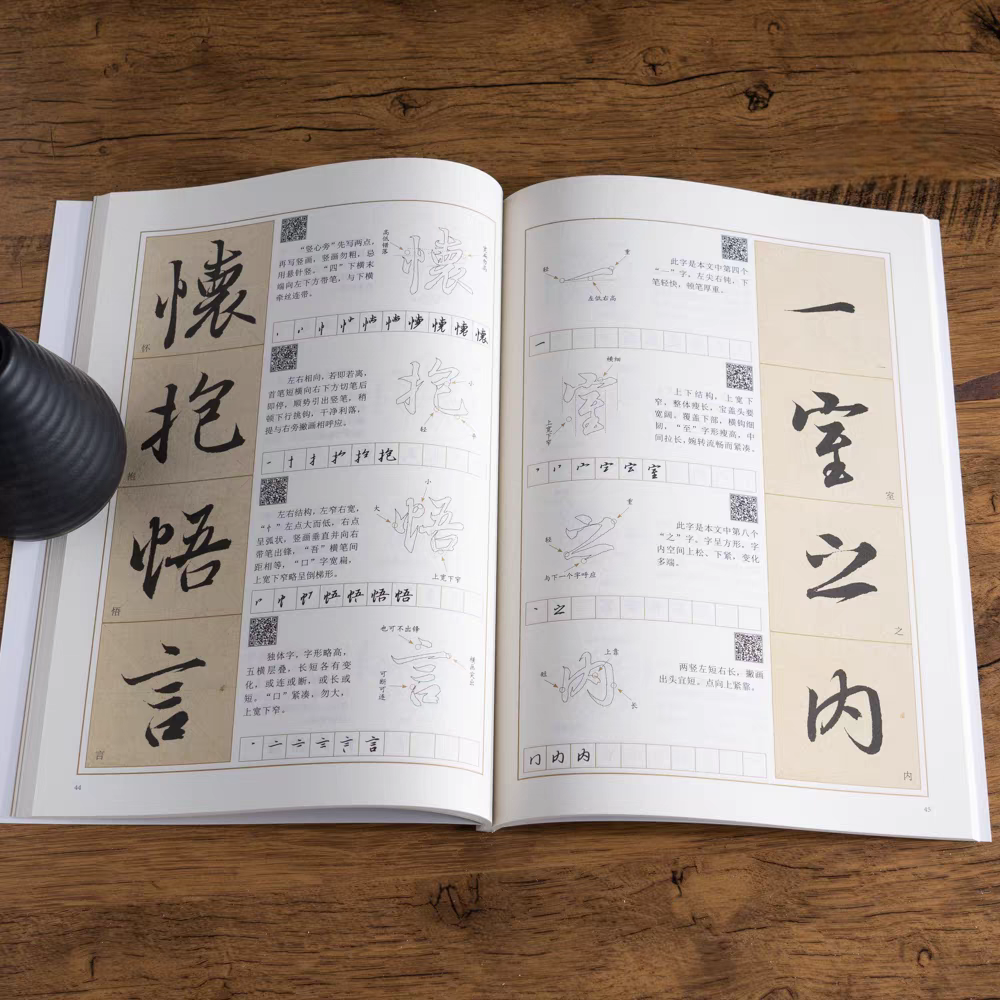 懷
怀
“竖心旁”先写两点，
再写竖画，竖画勿粗，忌
用悬针竖，“四”下横末
端向左下方带笔，与下横
牵丝连带。
高低错落
懷
懷
抱
抱
左右相向，若即若离，
首笔短横向右下方切笔后
即停，顺势引出竖笔，稍
顿下行挑钩，干净利落，
提与右旁撇画相呼应。
抱
小
轻
抱
悟
悟
左右结构，左窄右宽，
“忄”左点大而低，右点
呈弧状，竖画垂直并向右
带笔出锋，“吾”横笔间
距相等，“口”字宽扁，
上宽下窄略呈倒梯形。
小
大
悟
上宽下窄
悟 悟 悟 悟
言
言
独体字，字形略高，
五横层叠，长短各有变
化，或连或断，或长或
短。“口”紧凑，勿大，
上宽下窄。
也可不出锋
可断可连
言
言
44
重
轻
左低右高
此字是本文中第四个
“一”字。左尖右钝，下
笔轻快，顿笔厚重。
一
一
横细
室
上宽下窄
上下结构，上宽下
窄，整体瘦长，宝盖头要
宽阔。覆盖下部，横钩细
韧，“至”字形瘦高，中
间拉长，婉转流畅而紧凑。
室
室
室
重
轻
之
与下一个字呼应
此字是本文中第八个
“之”字。字呈方形，字
内空间上松、下紧，变化
多端。
之
之
之
上靠
轻
内
长
两竖左短右长，撇画
出头宜短。点向上紧靠。
内
内
内
45